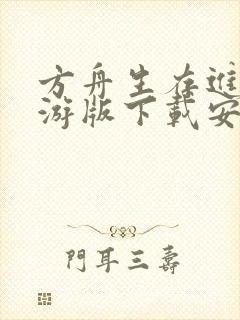 方舟生存進
游版下載安
門耳三壽